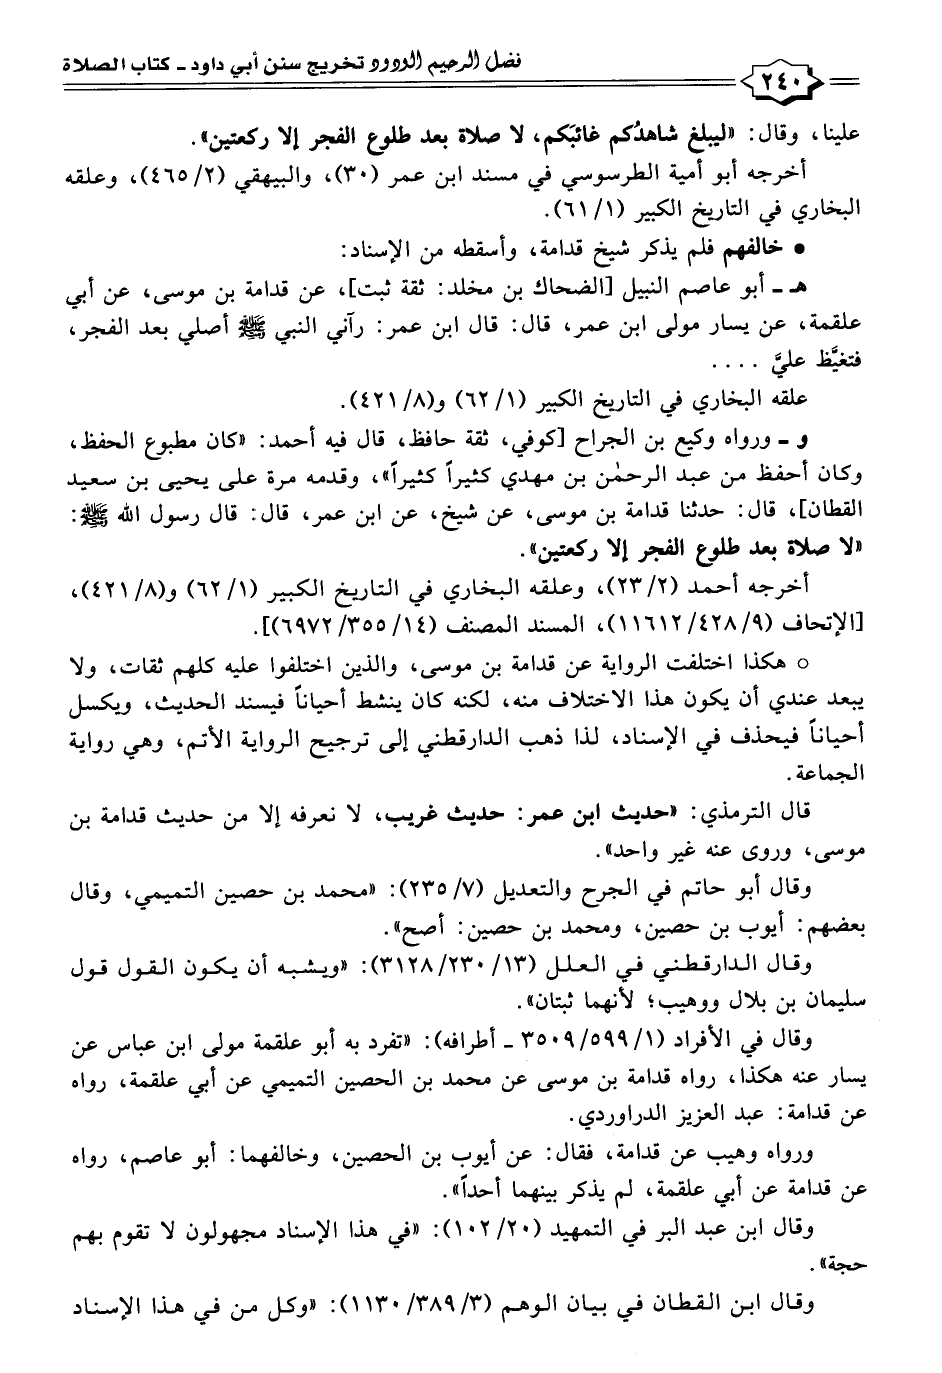 فضل الرحيم الودود تخريج سنن أبي داود - كتاب الصلاة
٢٤٠
علينا، وقال: «ليبلغ شاهدُكم غائبَكم، لا صلاة بعد طلوع الفجر إلا ركعتين».
أخرجه أبو أمية الطرسوسي في مسند ابن عمر (٣٠)، والبيهقي (٢/ ٤٦٥)، وعلقه
البخاري في التاريخ الكبير (١/ ٦١).
• خالفهم فلم يذكر شيخ قدامة، وأسقطه من الإسناد:
هـ - أبو عاصم النبيل [الضحاك بن مخلد: ثقة ثبت]، عن قدامة بن موسى، عن أبي
علقمة، عن يسار مولى ابن عمر، قال: قال ابن عمر: رآني النبي ﷺ أصلي بعد الفجر،
فتغيَّظ عليَّ ....
علقه البخاري في التاريخ الكبير (١/ ٦٢) و(٨/ ٤٢١).
و - ورواه وكيع بن الجراح [كوفي، ثقة حافظ، قال فيه أحمد: «كان مطبوع الحفظ،
وكان أحفظ من عبد الرحمٰن بن مهدي كثيراً كثيراً»، وقدمه مرة على يحيى بن سعيد
القطان]، قال: حدثنا قدامة بن موسى، عن شيخ، عن ابن عمر، قال: قال رسول الله ﷺ:
«لا صلاة بعد طلوع الفجر إلا ركعتين».
أخرجه أحمد (٢/ ٢٣)، وعلقه البخاري في التاريخ الكبير (١/ ٦٢) و(٨/ ٤٢١)،
[الإتحاف (٩/ ٤٢٨/ ١١٦١٢)، المسند المصنف (١٤/ ٣٥٥/ ٦٩٧٢)].
○ هكذا اختلفت الرواية عن قدامة بن موسى، والذين اختلفوا عليه كلهم ثقات، ولا
يبعد عندي أن يكون هذا الاختلاف منه، لكنه كان ينشط أحياناً فيسند الحديث، ويكسل
أحياناً فيحذف في الإسناد، لذا ذهب الدارقطني إلى ترجيح الرواية الأتم، وهي رواية
الجماعة.
قال الترمذي: «حديث ابن عمر: حديث غريب، لا نعرفه إلا من حديث قدامة بن
موسى، وروى عنه غير واحد».
وقال أبو حاتم في الجرح والتعديل (٧/ ٢٣٥): «محمد بن حصين التميمي، وقال
بعضهم: أيوب بن حصين، ومحمد بن حصين: أصح».
وقال الدارقطني في العلل (١٣/ ٢٣٠/ ٣١٢٨): «ويشبه أن يكون القول قول
سليمان بن بلال ووهيب؛ لأنهما ثبتان».
وقال في الأفراد (١/ ٥٩٩/ ٣٥٠٩ - أطرافه): «تفرد به أبو علقمة مولى ابن عباس عن
يسار عنه هكذا، رواه قدامة بن موسى عن محمد بن الحصين التميمي عن أبي علقمة، رواه
عن قدامة: عبد العزيز الدراوردي.
ورواه وهيب عن قدامة، فقال: عن أيوب بن الحصين، وخالفهما: أبو عاصم، رواه
عن قدامة عن أبي علقمة، لم يذكر بينهما أحداً».
وقال ابن عبد البر في التمهيد (٢٠/ ١٠٢): «في هذا الإسناد مجهولون لا تقوم بهم
حجة».
وقال ابن القطان في بيان الوهم (٣/ ٣٨٩/ ١١٣٠): «وكل من في هذا الإسناد